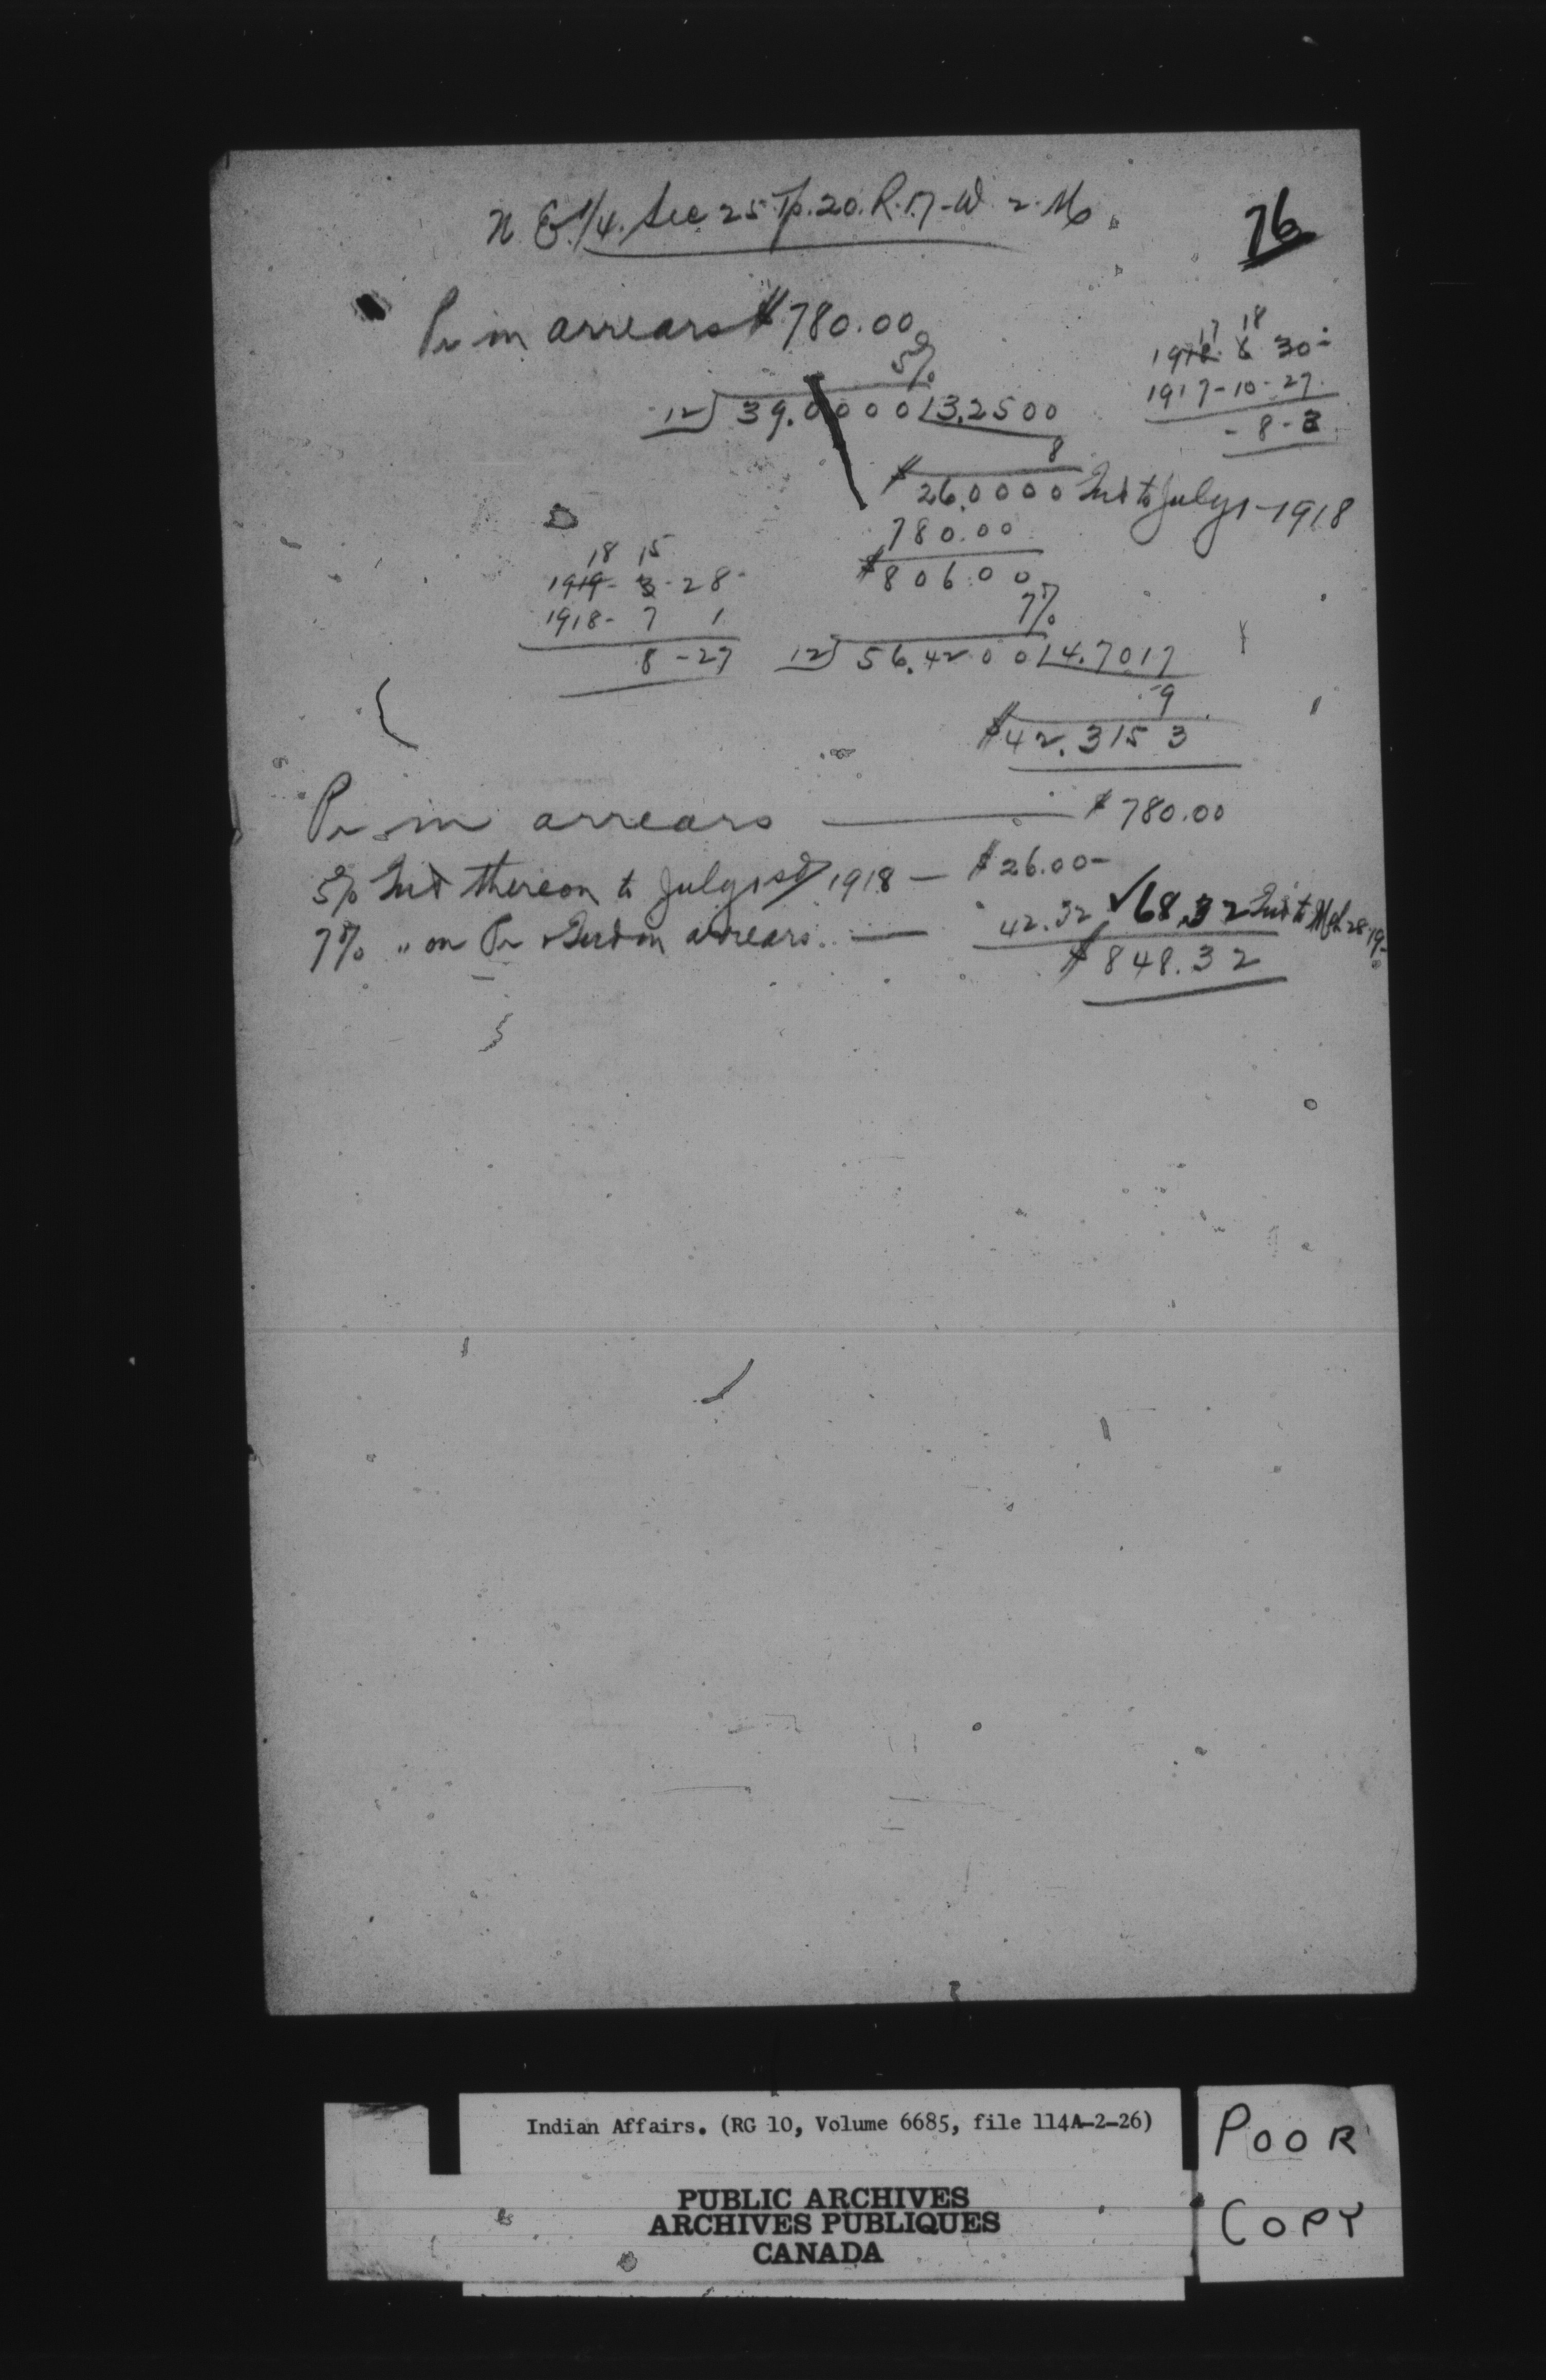 N. E. 1/4. Sec. 25. Tp. 20. R. 17. W 2. M.
76
Pr in arrears $780.00
5%
12) 39.0000 ( 3.2500
8
$26.0000 Int to July 1 - 1918
780.00
$806.00
7%
12) 56.4200 ( 4.7017
9
$42.3153
17 18
1918. 6 30
1917-10-27
- 8 - 3
18 15
1919- 3-28
1918- 7 1
8-27
Pr in arrears — $780.00
5% Int thereon to July 1st 1918 — $26.00
7% " on Pr & Int in arrears — 42.32 ✓68.32 Int to Mch 28-19-
$848.32
Indian Affairs. (RG 10, Volume 6685, file 114A-2-26)
PUBLIC ARCHIVES
ARCHIVES PUBLIQUES
CANADA
POOR
COPY